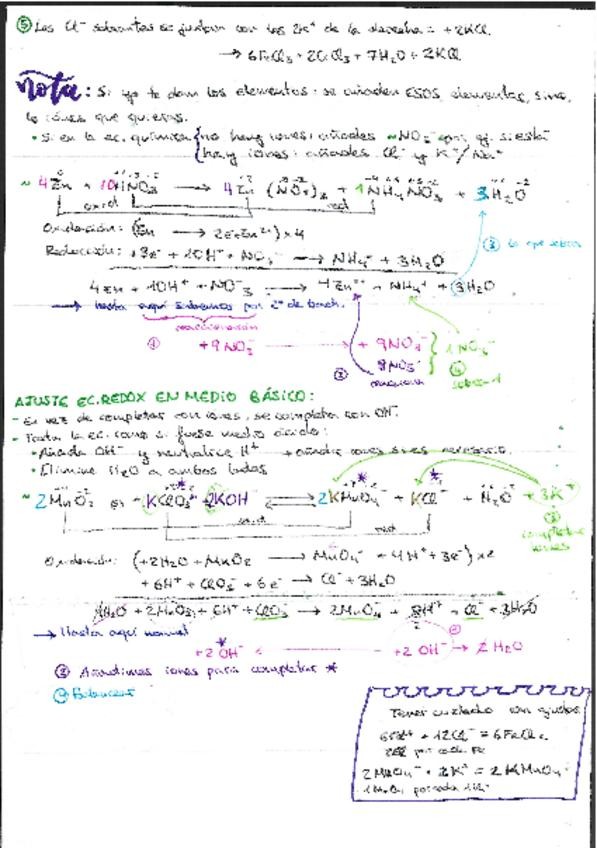 ⑤ Los Cl⁻ sobrantes se juntan con los 2K⁺ de la derecha = +2KCl
→ 6FeCl₃ + 2CrCl₃ + 7H₂O + 2KCl
Nota: Si ya te dan los elementos: se añaden ESOS elementos, sino,
lo iones que quieras.
• Si en la ec. química no hay iones: añades NO₃⁻ si está
hay iones: añades Cl⁻ y K⁺/Na⁺
~ 4Zn + 10HNO₃ → 4Zn(NO₃)₂ + 1NH₄NO₃ + 3H₂O
oxid red
Oxidación: (Zn → 2e⁻ + Zn²⁺) x4
③ lo que sobra
Reducción: + 10H⁺ + NO₃⁻ → NH₄⁺ + 3H₂O
4Zn + 10H⁺ + NO₃⁻ → 4Zn²⁺ + NH₄⁺ + 3H₂O
→ hasta aquí sabemos por 2º de bach.
① +9NO₃⁻ → + 9NO₃⁻ 1NO₃⁻
② 8NO₃⁻ ④
AJUSTE EC. REDOX EN MEDIO BÁSICO:
- En vez de completar con iones, se completa con OH⁻
- Hasta la ec. como si fuese medio ácido:
• Añada OH⁻ y neutralice H⁺ + añadir iones si es necesario.
• Elimine H₂O a ambos lados
~ 2MnO₂ + KClO₃ + 2KOH ⇌ 2KMnO₄ + KCl + H₂O + 3K⁺
oxid red
③ completar iones
Oxidación: (+2H₂O + MnO₂ → MnO₄⁻ + 4H⁺ + 3e⁻) x2
+ 6H⁺ + ClO₃⁻ + 6e⁻ → Cl⁻ + 3H₂O
4H₂O + 2MnO₂ + 6H⁺ + ClO₃⁻ → 2MnO₄⁻ + 8H⁺ + Cl⁻ + 3H₂O
→ Hasta aquí normal
+2OH⁻ +2OH⁻ → 2H₂O
② Añadimos iones para completar *
Balancear
Tener cuidado con ajustes
+ 12Cl⁻ = 6FeCl₂
por cada Fe
2MnO₄⁻ + 2K⁺ = 2KMnO₄
1 MnO₄ por cada 1K⁺